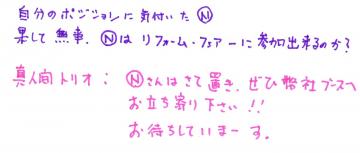 自分のポジションに気付いたⓃ
果して無事、Ⓝはリフォーム・フェアーに参加出来るのか?
真人間トリオ： Ⓝさんはさて置き、ぜひ弊社ブースへ
お立ち寄り下さい!!
お待ちしていまーす。